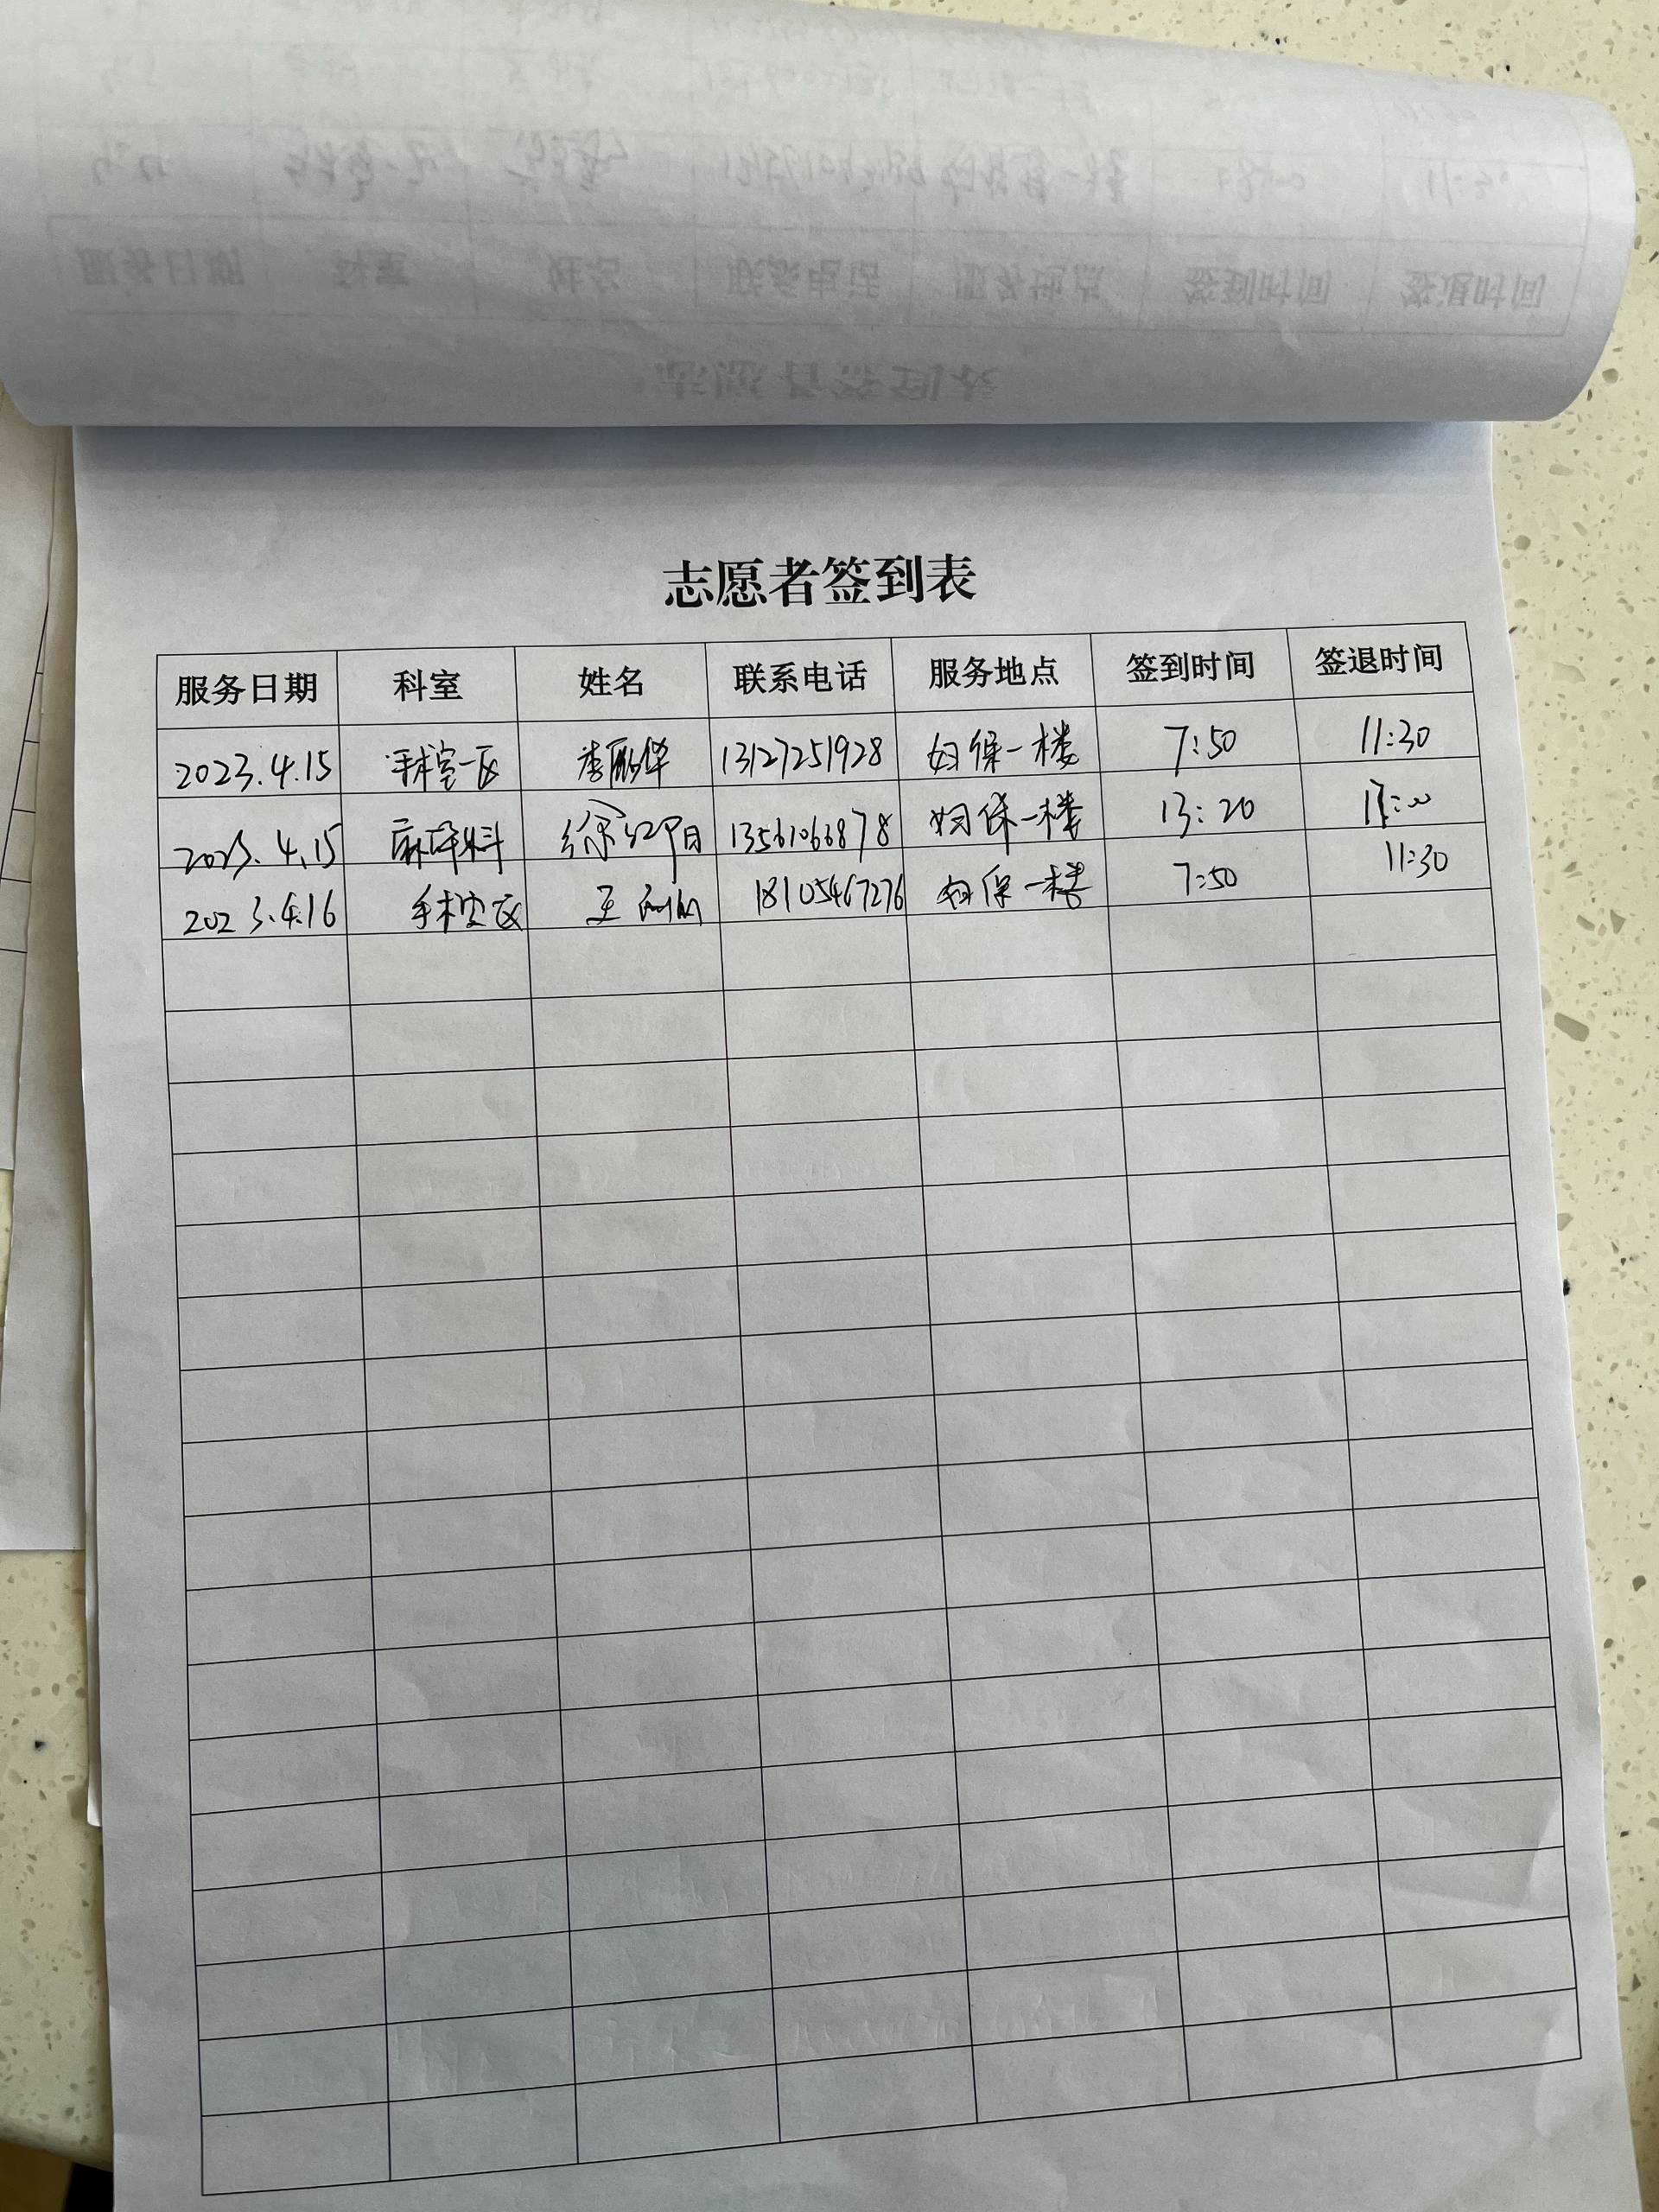 志愿者签到表
服务日期 科室 姓名 联系电话 服务地点 签到时间 签退时间
2023.4.15 手术室一区 李丽华 13127251928 妇保一楼 7:50 11:30
2023.4.15 麻醉科 徐红明 13561066878 妇保一楼 13:20 17:00
2023.4.16 手术室区 王 18105467276 妇保一楼 7:50 11:30